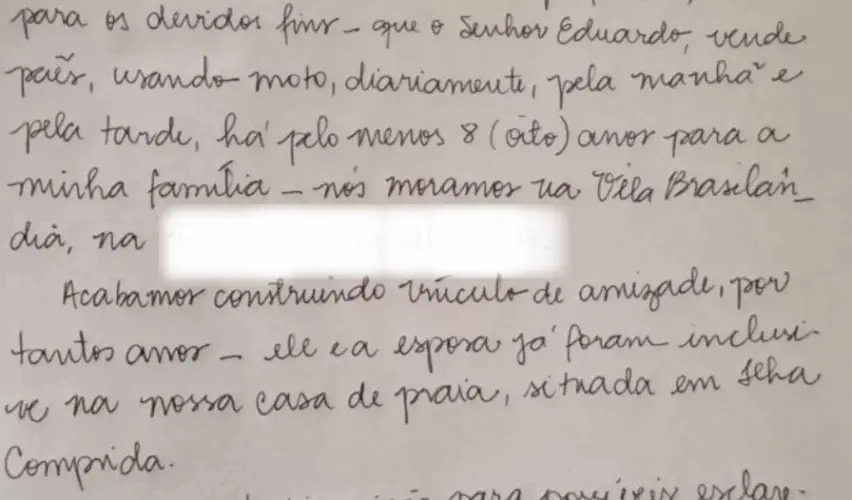 para os devidos fins - que o Senhor Eduardo, vende
pães, usando moto, diariamente, pela manhã e
pela tarde, há pelo menos 8 (oito) anos para a
minha família - nós moramos na Vila Brasilân_
dia, na
Acabamos construindo vínculo de amizade, por
tantos anos - ele e a esposa já foram inclusi-
ve na nossa casa de praia, situada em Ilha
Comprida.
para possíveis esclare-